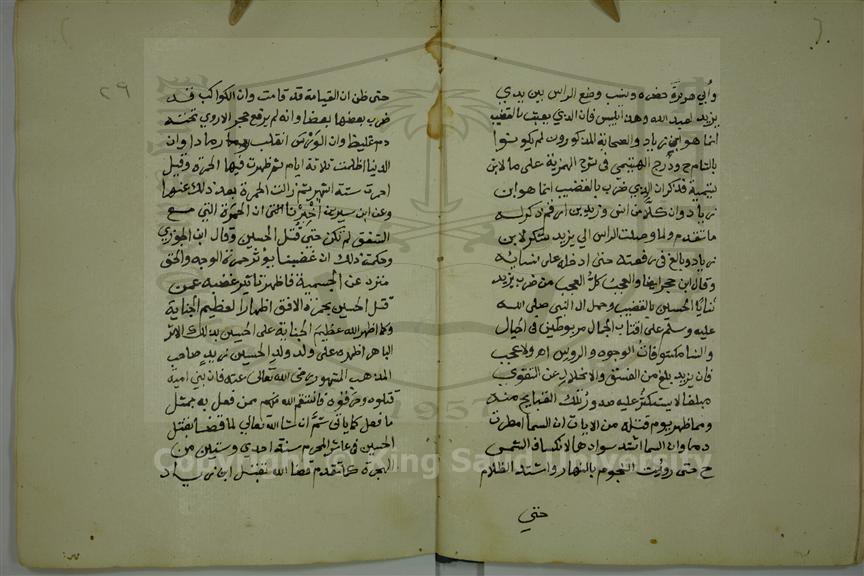 وأبي هريرة حضره ونسب وضع الراس بين يدي
يزيد لعبيد الله وهذا ليس فان الذي يعبث بالقضيب
انما هو ابن زياد والصحابة المذكورون لم يكونوا
بالشام ح ودرج الهيتمي في شرح الهمزية على ما لابن
تيمية فذكر ان الذي ضرب بالقضيب انما هو ابن
زياد وان كلا من انس وزيد بن ارقم ذكر له
ما تقدم ولما وصلت الراس الي يزيد شكر لابن
زياد وبالغ في رفعته حتى ادخله على نسائه
وقال ابن حجر ايضا والعجب كل العجب من ضرب يزيد
ثنايا الحسين بالقضيب وحمل ال النبي صلى الله
عليه وسلم على اقتاب الجمال مربوطين في الحبال
والنسا مكشوفات الوجوه والروس اه ولا عجب
فان يزيد بلغ من الفسق والانحلال عن التقوى
مبلغا لا يستكثر عليه صدور تلك القبايح منه
ومما ظهر يوم قتله من الايات ان السما امطرت
دما وان السما اشتد سوادها لانكساف الشمس
ح حتى رويت النجوم بالنهار واشتد الظلام
حتي
٢٩
حتى ظن ان القيامة قد قامت وان الكواكب قد
ضرب بعضها بعضا وانه لم يرفع حجر الا روي تحته
دم غليظ وان الورس انقلب رمادا وان
الدنيا اظلمت ثلاثة ايام ثم ظهرت فيها الحمرة وقيل
احمرت ستة اشهر ثم زالت الحمرة بعد ذلك عنها
وعن ابن سيرين أخبرنا ان الحمرة التي مع
الشفق لم تكن حتى قتل الحسين وقال ابن الجوزي
وحكمة ذلك ان غضبنا يوثر حمرة الوجه والحق
منزه عن الجسمية فاظهر تاثير غضبه عمن
قتل الحسين بحمرة الافق اظهارا لعظيم الجناية
وكما اظهر الله عظيم الجناية على الحسين بذلك الاثر
الباهر اظهره على ولد ولد الحسين زيد صاحب
المذهب المشهور رضي الله تعالى عنه فان بني امية
قتلوه وحرقوه فانتقم الله منهم بمن فعل به بمثل
ما فعل كما ياتي ثم ان شا الله تعالى لما قضا بقتل
الحسين في عاشر المحرم سنة احدي وستين من
الهجرة كما تقدم قضا الله بقتل ابن زياد
1957
Copyright © King Saud University